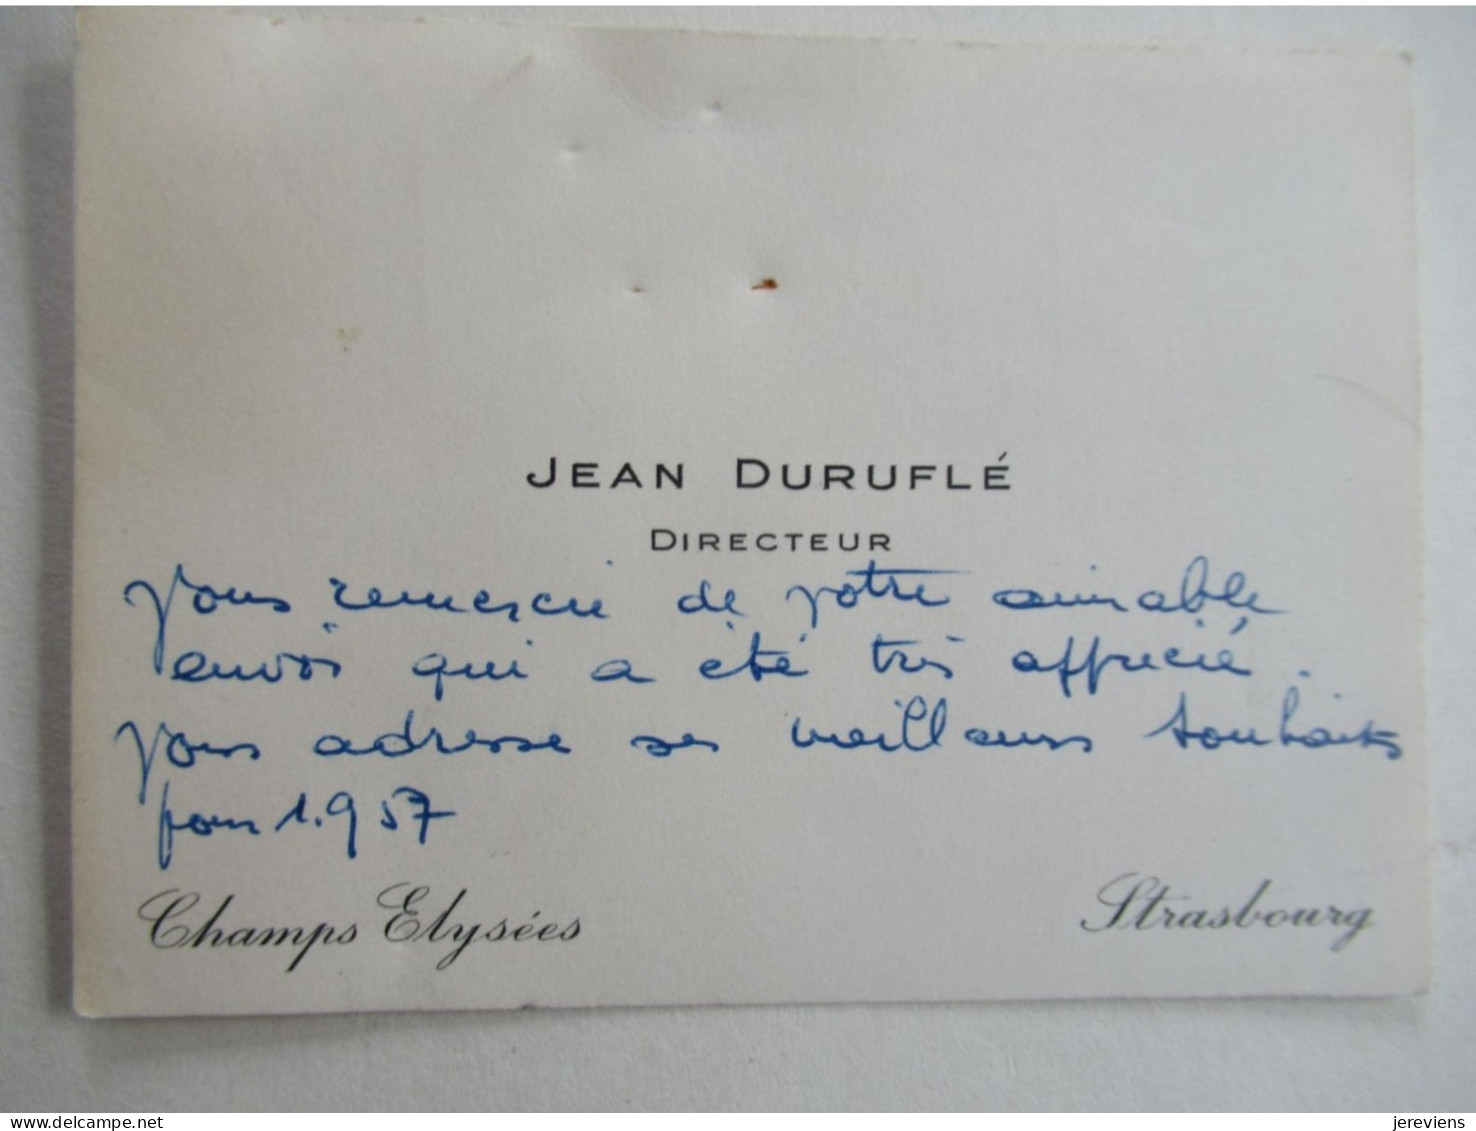 JEAN DURUFLÉ
DIRECTEUR
Vous remercie de votre aimable
envoi qui a été très apprécié.
Vous adresse ses meilleurs souhaits
pour 1.957
Champs Elysées Strasbourg
jereviens